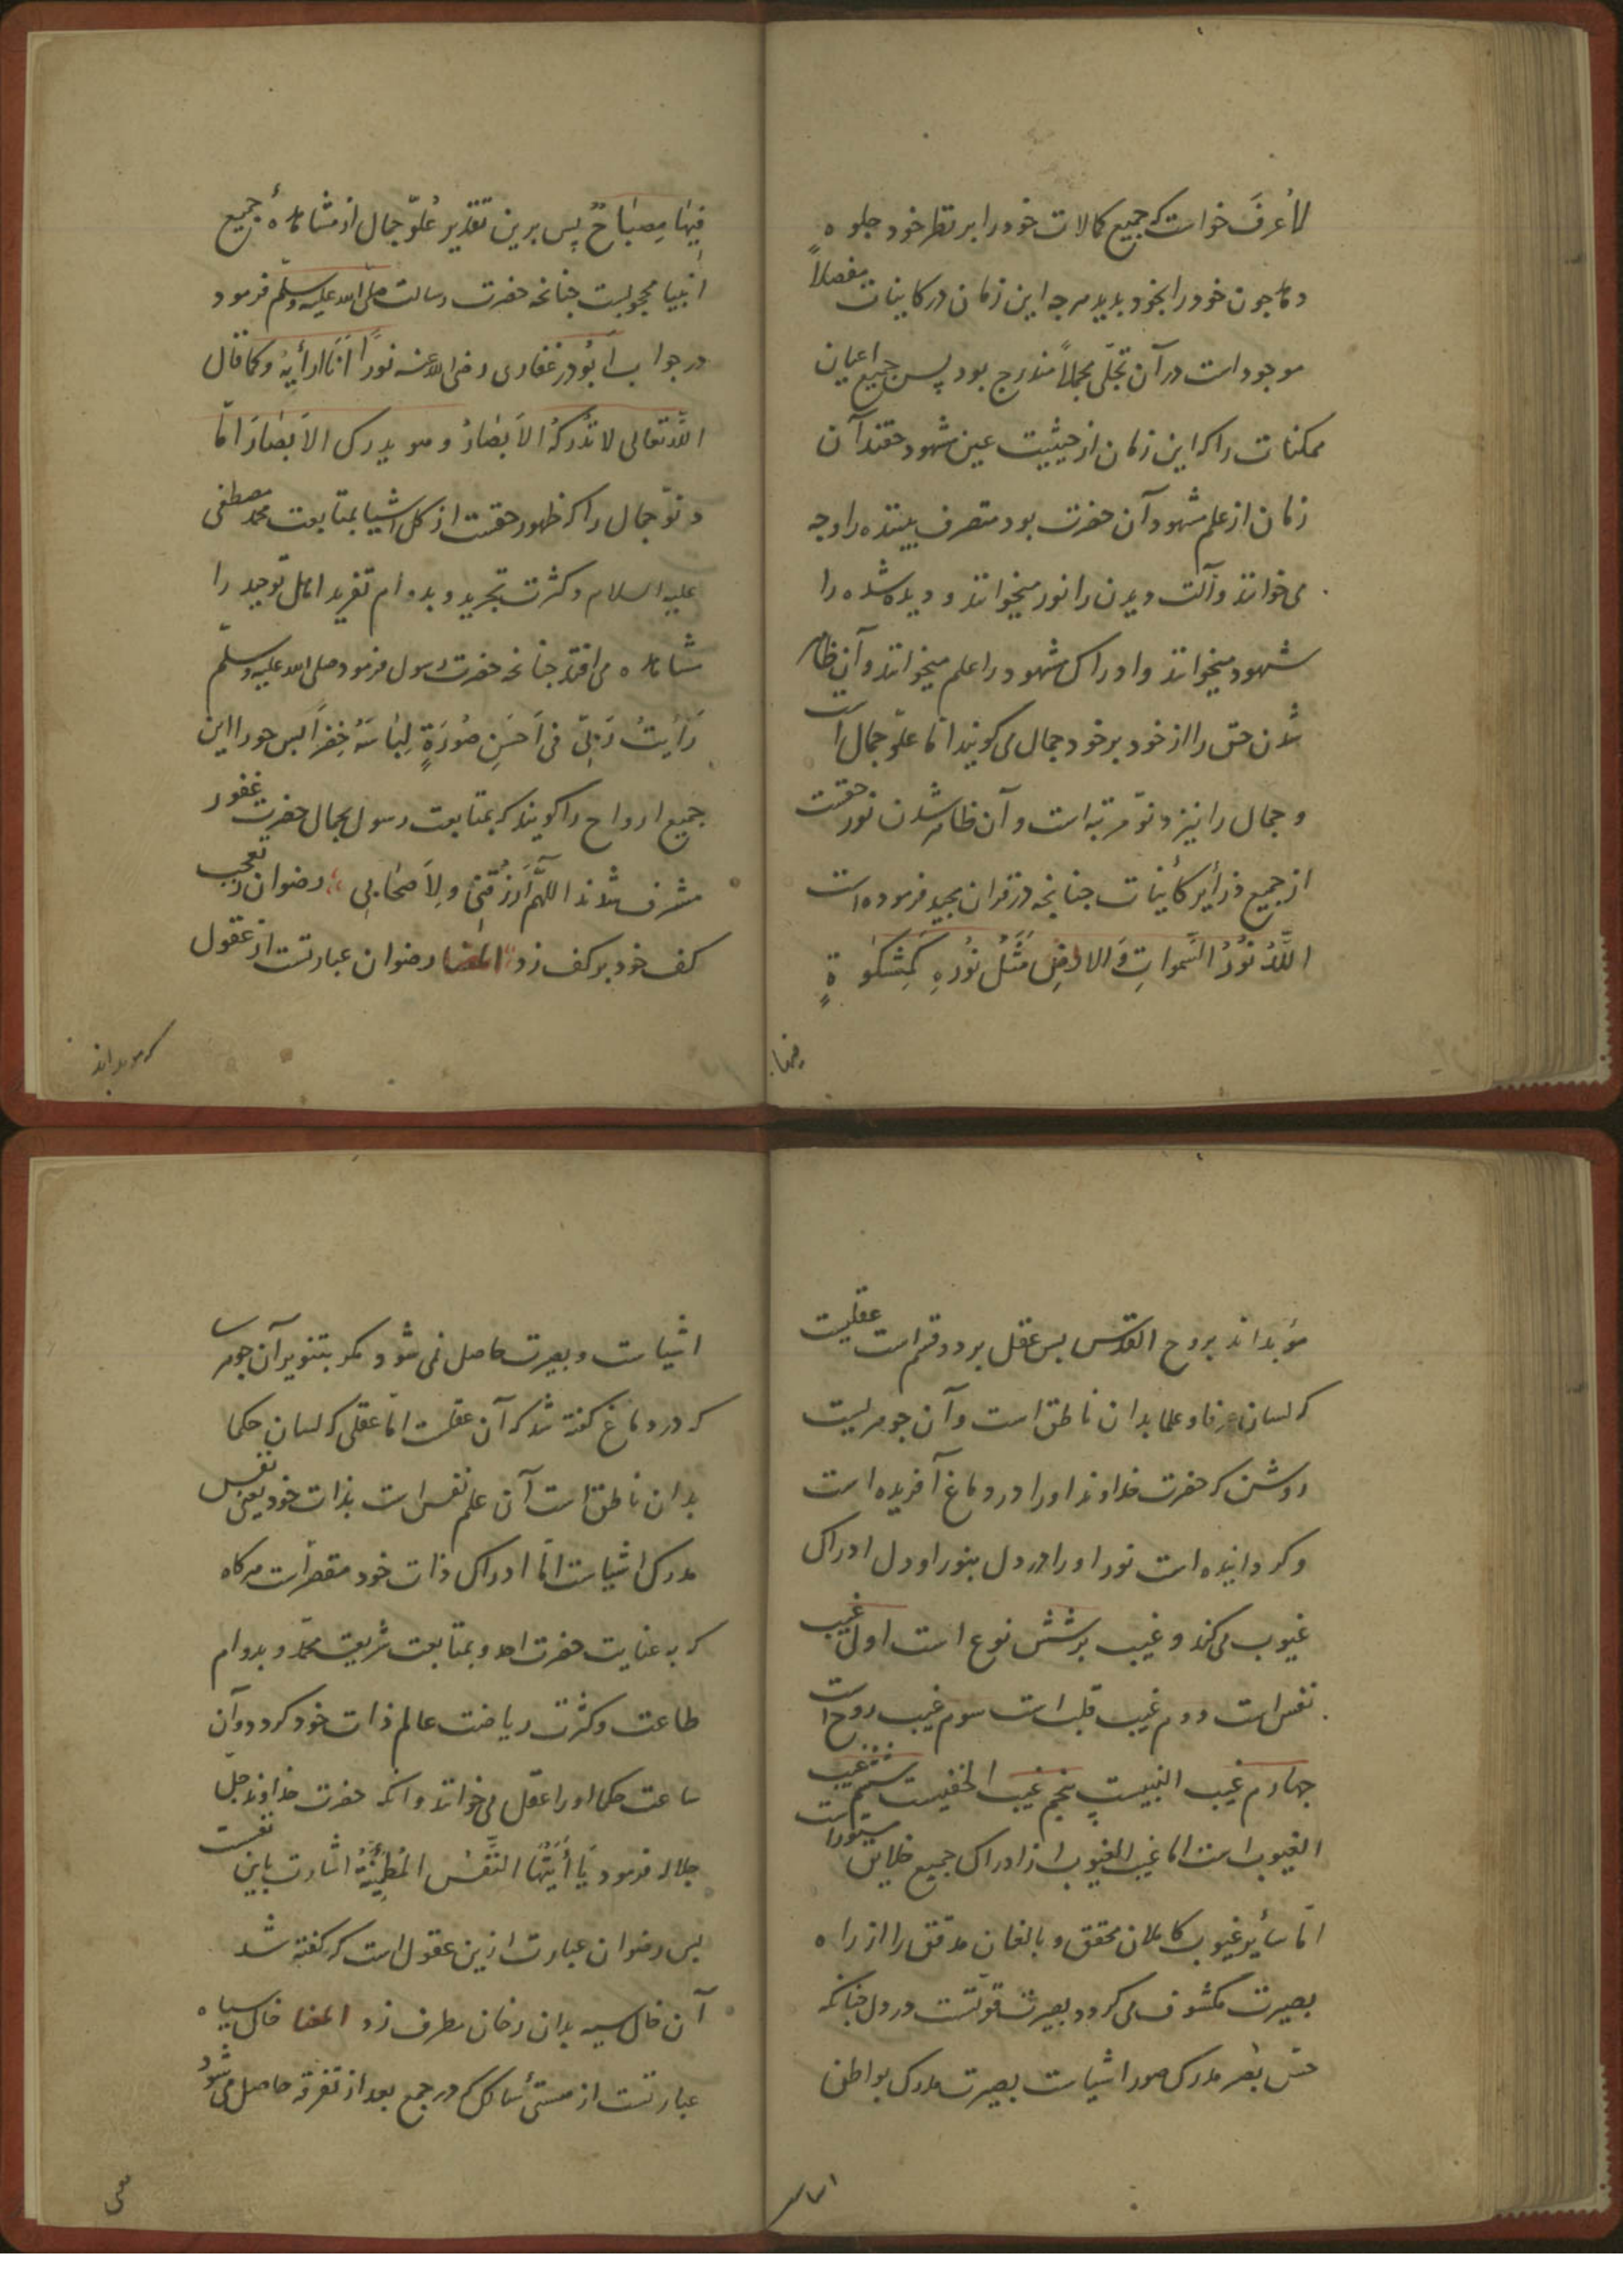 لأُعرفَ خواست که جمیع کمالات خود را بر نظر خود جلوه
دهد چون خود را بخود بدید هرچه این زمان در کاینات مفصلاً
موجود است در آن تجلّی مجملاً مندرج بود پس جمیع اعیان
ممکنات را که این زمان از حیثیت عین مشهود حقند آن
زمان از علم مشهود آن حضرت بود متصرف بیننده را وجه
می خوانند و آلت دیدن را نور میخوانند و دیده شده را
شهود میخوانند و ادراک مشهود را علم میخوانند و آن ظاهر
شدن حق را از خود بر خود جمال می کویند امّا علوّ جمال است
و جمال را نیز دنوّ مرتبه است و آن ظاهر شدن نور حقست
از جمیع ذرأیر کأینات چنانچه در قران مجید فرموده است
اللّهُ نُورُ السَّمواتِ وَالارضِ مَثَلُ نُورِهِ کَمِشکوٰةٍ
فیها
فِیهَا مِصبَاحٌ پس برین تقدیر عُلوّ جمال از مشاهدهٔ جمیع
انبیا محجوبست چنانچه حضرت رسالت صلّی الله علیه وسلّم فرمود
در جواب اَبُوذر غفاری رضی الله عنه نُورًا اَنَّا اَرأیهُ و کما قال
اللّه تعالی لا تُدرکهُ الاَبصَارُ و هو یدرک الاَبصَارَ امّا
دنوّ جمال را که ظهور حقست از کل اشیا بمتابعت محمد مصطفی
علیه السلام و کثرت تجرید و بدوام تفرید اهل توحید را
مشاهده می افتد چنانچه حضرت رسول فرمود صلی الله علیه وسلّم
رَأیتُ رَبّی فی اَحسَنِ صُورَةٍ لِبَاسَهُ خِضرًا پس حورا این
جمیع ارواح را کویند که بمتابعت رسول بجمال حضرت غفور
مشرف شدند اللّهُمَّ اَرزُقنِی ولِاَصحَابِی رضوان ز تعجب
کف خود بر کف زد المعنا رضوان عبارتست از عقول
که موید اند
مؤید اند بروح القدس پس عقل بر دو قسم است عقلیست
که لسان عرفا و علما بدان ناطق است و آن جوهریست
روشن که حضرت خداوند او را در دماغ آفریده است
و کردانیده است نور او را در دل بنور او دل ادراک
غیوب می کند و غیب بر شش نوع است اول غیب
نفس است دوم غیب قلب است سوم غیب روح است
چهارم غیب النبیست پنجم غیب الخفیست ششم غیب
الغیوب است امّا غیب الغیوب از ادراک جمیع خلایق مستور است
امّا سأیر غیوب کاملان محقق و بالغان مدقق را از راه
بصیرت مکشوف می کردد و بصیرت قوّتست در دل چنانکه
حسّ بصر مدرک صور اشیاست بصیرت مدرک بواطن
اشیا
اشیاست و بصیرت حاصل نمی شود مکر بتنویر آن جوهر
که در دماغ کفته شد که آن عقلست امّا عقلی که لسان حکما
بدان ناطق است آن علم نفس است بذات خود یعنی نفس
مدرک اشیاست امّا ادراک ذات خود مقصر است هرکاه
که به عنایت حضرت احد و بمتابعت شریعت محمّد و بدوام
طاعت و کثرت ریاضت عالم ذات خود کردد و آن
ساعت حکما او را عقل می خوانند و آنکه حضرت خداوند جلّ
جلاله فرمود یَا أَیَّتُهَا النَّفْسُ المُطمَئِنَّةُ اشارت باین نفست
پس رضوان عبارت ازین عقول است که کفته شد
آن خال سیه بدان رخان مطرف زد المعنا خال سیاه
عبارتست از هستیٔ سالک که در جمع بعد از تفرقه حاصل می شود